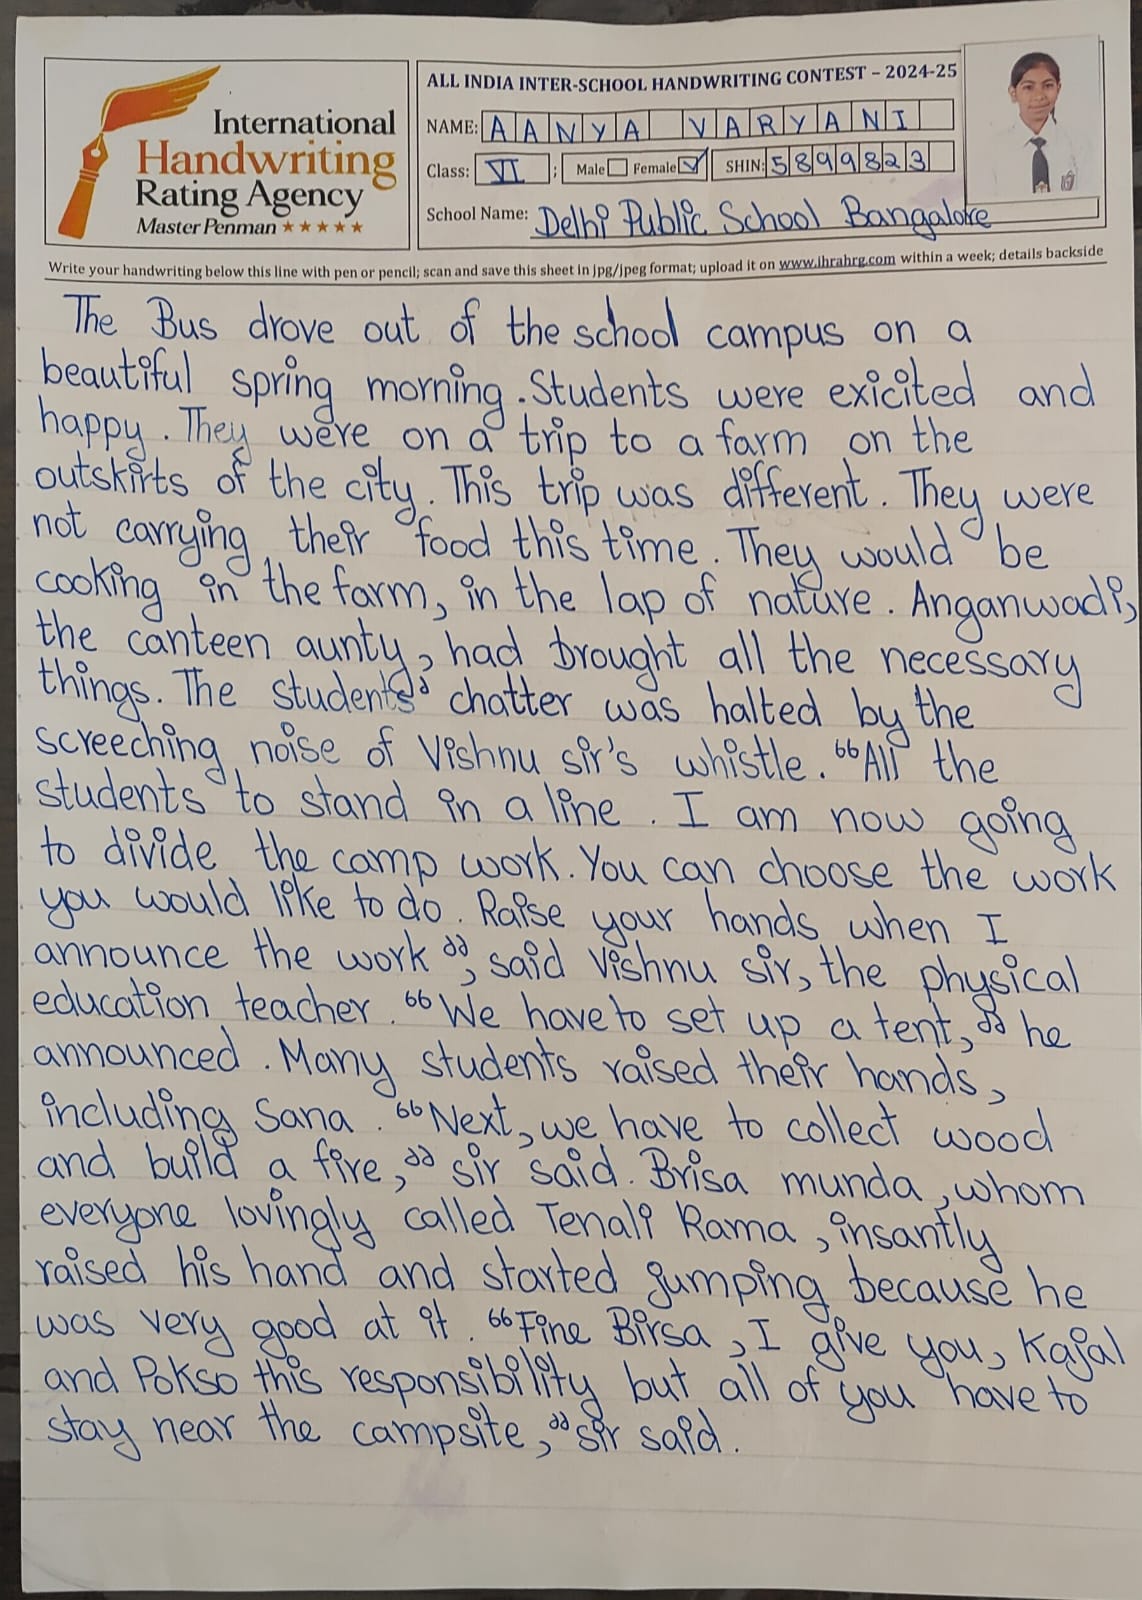 International
Handwriting
Rating Agency
Master Penman ★★★★★
ALL INDIA INTER-SCHOOL HANDWRITING CONTEST – 2024-25
NAME: AANYA VARYANI
Class: VI ; Male Female ✓ SHIN: 5899823
School Name: Delhi Public School Bangalore
Write your handwriting below this line with pen or pencil; scan and save this sheet in jpg/jpeg format; upload it on www.ihrahrg.com within a week; details backside
The Bus drove out of the school campus on a
beautiful spring morning. Students were exicited and
happy. They were on a trip to a farm on the
outskirts of the city. This trip was different. They were
not carrying their food this time. They would be
cooking in the farm, in the lap of nature. Anganwadi,
the canteen aunty, had brought all the necessary
things. The students' chatter was halted by the
screeching noise of Vishnu sir's whistle. "All the
students to stand in a line. I am now going
to divide the camp work. You can choose the work
you would like to do. Raise your hands when I
announce the work", said Vishnu sir, the physical
education teacher. "We have to set up a tent," he
announced. Many students raised their hands,
including Sana. "Next, we have to collect wood
and build a fire," sir said. Brisa munda, whom
everyone lovingly called Tenali Rama, insantly
raised his hand and started jumping because he
was very good at it. "Fine Birsa, I give you, Kajal
and Pokso this responsibility but all of you have to
stay near the campsite," sir said.